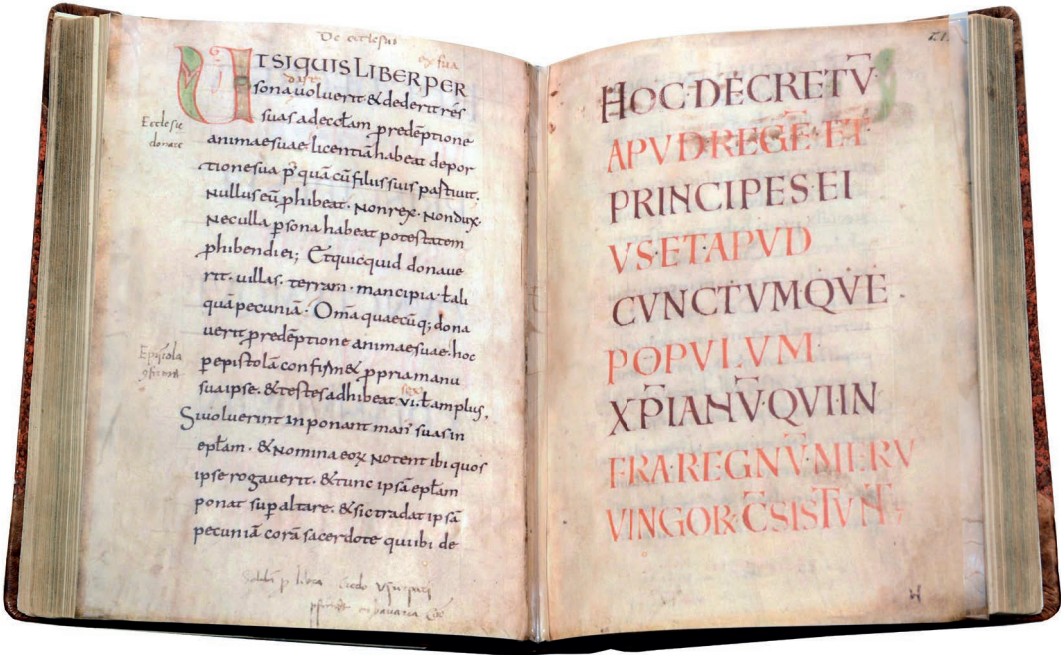 De ecclesiis
ex sua
UT SIQUIS LIBER PER
sona uoluerit & dederit rés
suas ad eccłam p redẽptione
Ecclesie
donare
animae suae licentiã habeat depor
tione sua p̃ quã cũ filiis suis partiuit.
Nullus eũ phibeat. Non rex. Non dux.
Nec ulla p̱sona habeat potestatem
phibendi ei; Et quicquid donaue
rit. uillas. terram. mancipia. ł ali
quã pecuniã. Om̃a quaecũq; dona
uerit p redẽptione animae suae. hoc
Epistola
p epistolã confirm& p pria manu
sua ipse. & testes adhibeat. vi. ł amplus.
Si uoluerint inponant man' suas in
epłam. & Nomina eoꝝ Notent ibi quos
ipse rogauerit. & tunc ipsã epłam
ponat sup altare. & sic tradat ipsã
pecuniã corã sacerdote qui ibi de
HOC·DECRETṼ
APVD REGẼ·ET
PRINCIPES·EI
VS·ET·APVD
CVNCTVMQVE
POPVLVM
XP̃IANṼ·QVI·IN
FRA·REGNṼ·MERV
VINGOR·C̃SISTVÑT